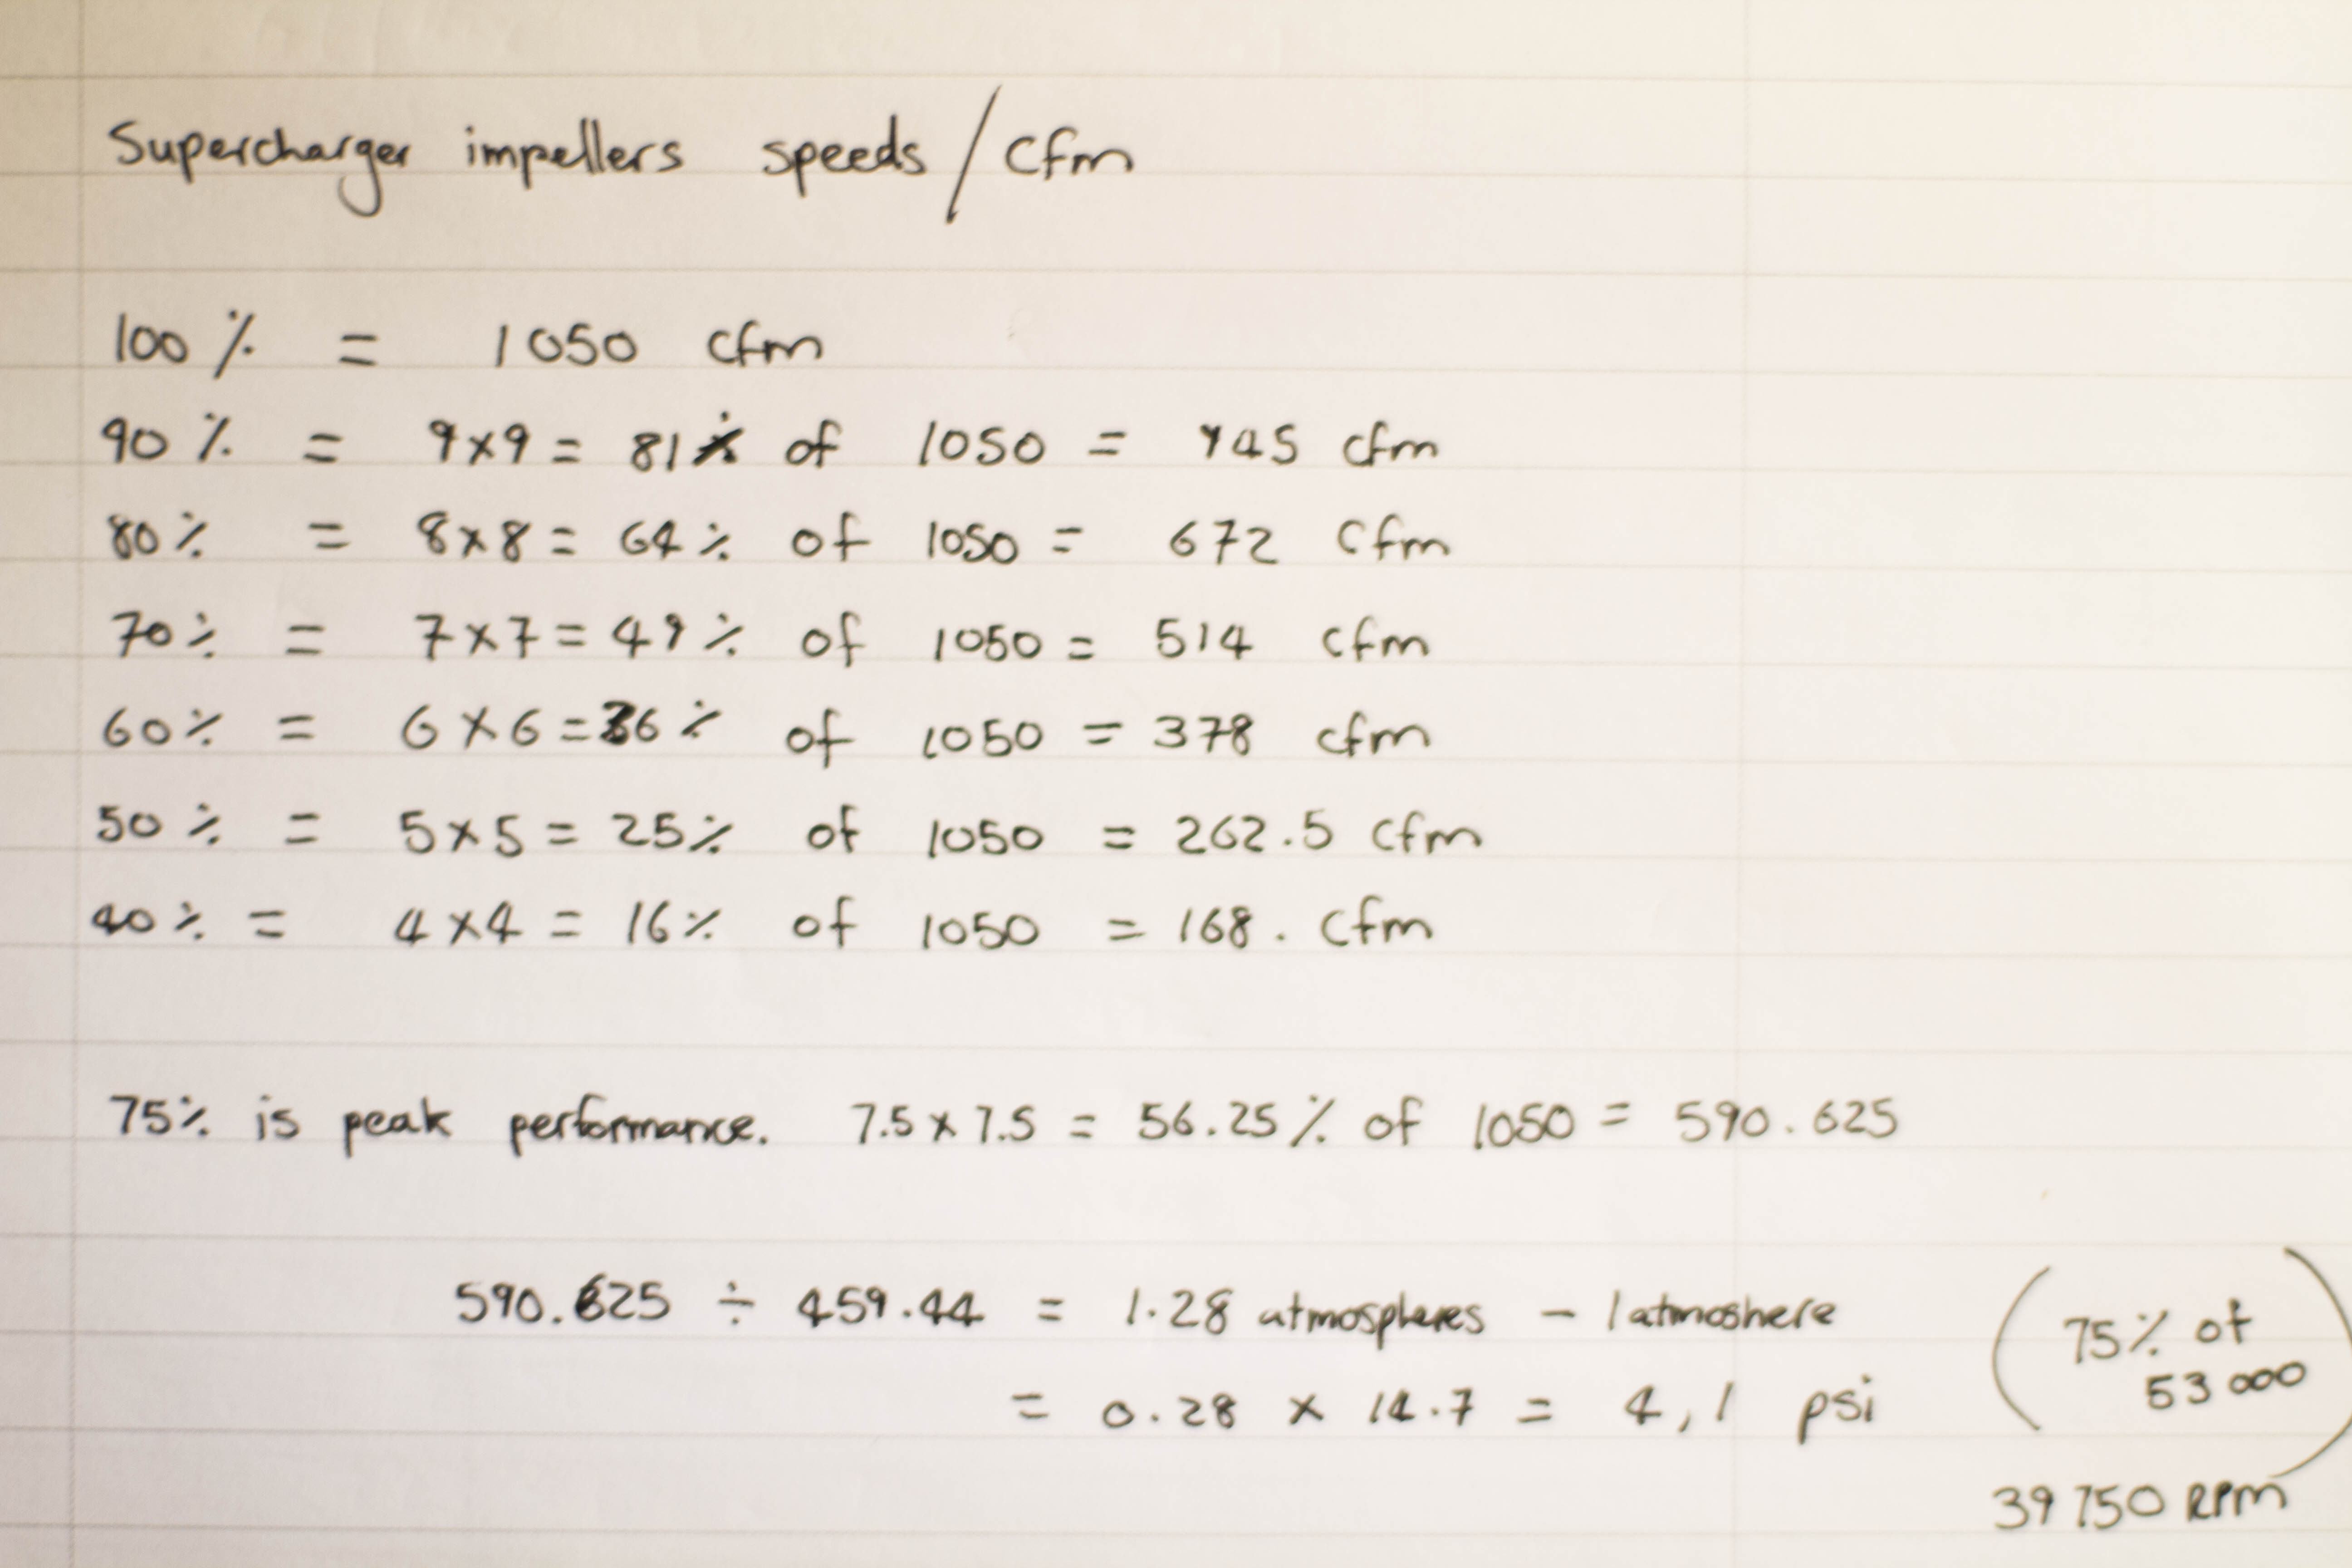 Supercharger impellers speeds / cfm
100 % = 1050 cfm
90 % = 9x9 = 81% of 1050 = 945 cfm
80 % = 8x8 = 64 % of 1050 = 672 cfm
70 % = 7x7 = 49 % of 1050 = 514 cfm
60 % = 6x6 = 36 % of 1050 = 378 cfm
50 % = 5x5 = 25 % of 1050 = 262.5 cfm
40 % = 4x4 = 16 % of 1050 = 168. cfm
75% is peak performance. 7.5 x 7.5 = 56.25 % of 1050 = 590.625
590.625 ÷ 459.44 = 1.28 atmospheres - 1 atmoshere
= 0.28 x 14.7 = 4,1 psi
(75% of
53 000)
39 750 RPM